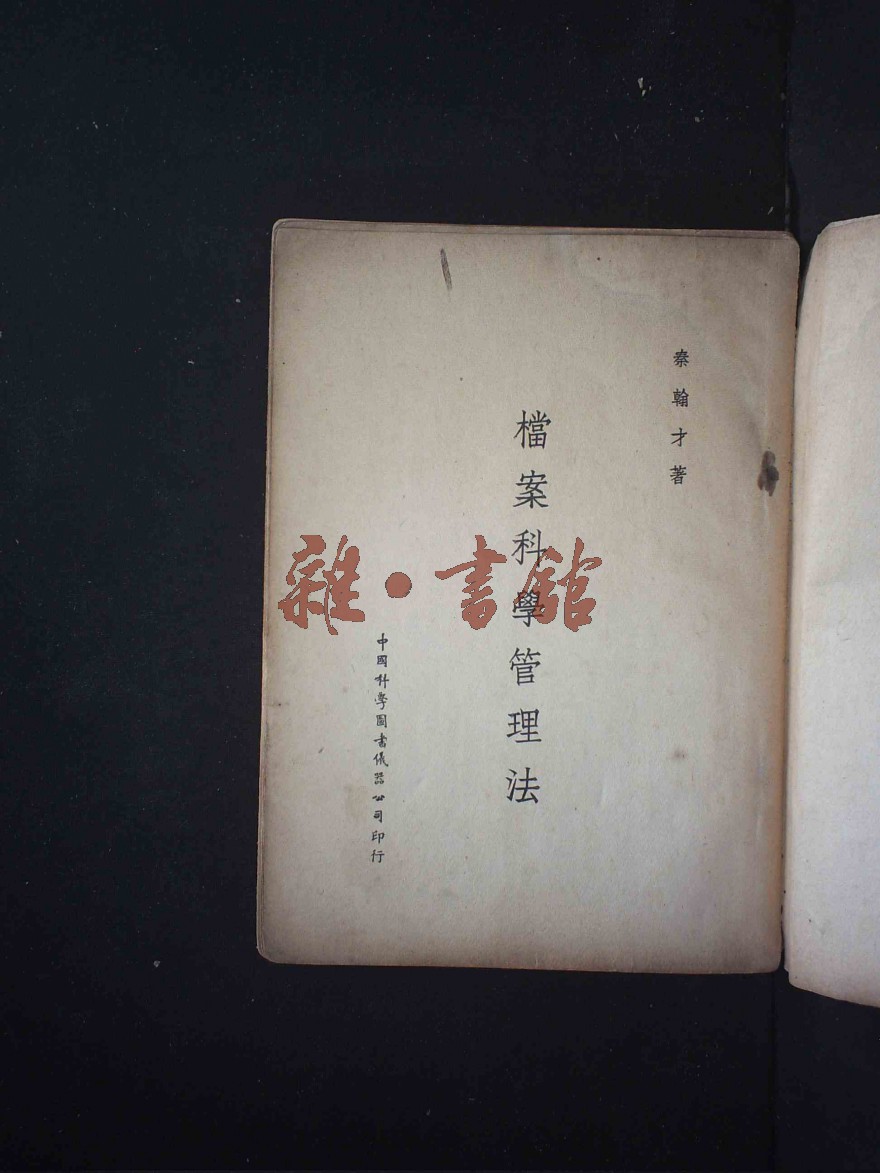 秦翰才著
檔案科學管理法
中國科學圖書儀器公司印行
雜·書館